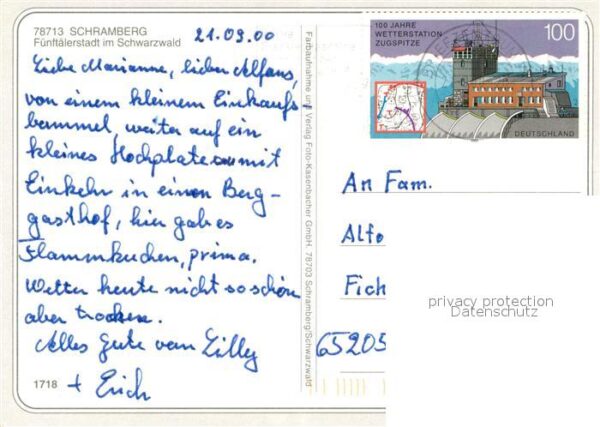 78713 SCHRAMBERG
Fünftälerstadt im Schwarzwald
21.09.00
Liebe Marianne, lieber Alfons,
von einem kleinem Einkaufs
bummel, weiter auf ein
kleines Hochplateau mit
Einkehr in einen Berg-
gasthof, hier gab es
Flammkuchen, prima.
Wetter heute nicht so schön
aber trocken.
Alles Gute von Lilly
+ Erich
1718
Farbaufnahme und Verlag Foto-Kasenbacher GmbH, 78703 Schramberg/Schwarzwald
100 JAHRE
WETTERSTATION
ZUGSPITZE
100
DEUTSCHLAND
An Fam.
Alfo
Fich
65205
privacy protection
Datenschutz